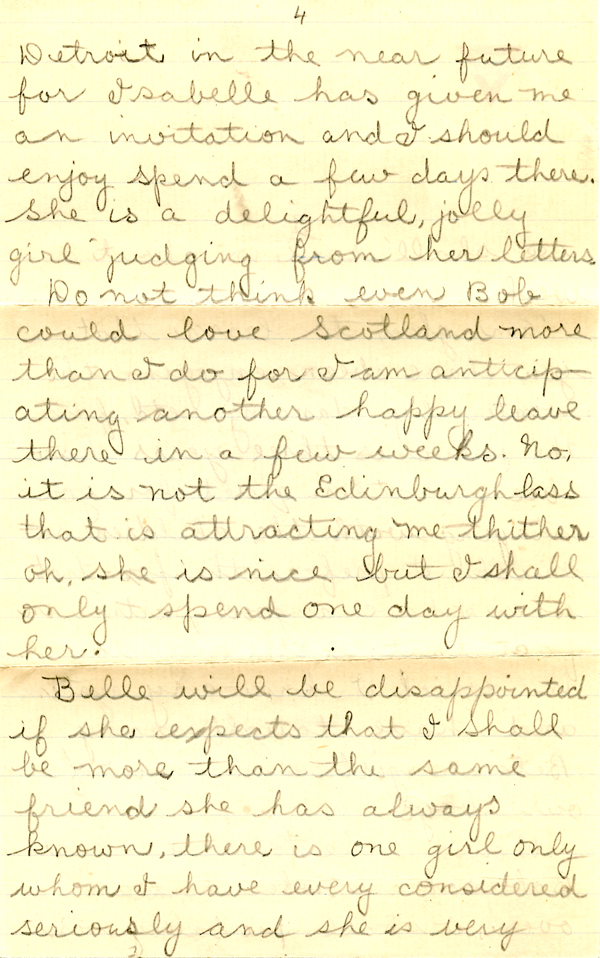 4
Detroit in the near future
for Isabelle has given me
an invitation and I should
enjoy spend a few days there.
She is a delightful, jolly
girl judging from her letters.
Do not think even Bob
could love Scotland more
than I do for I am anticip-
ating another happy leave
there in a few weeks. No,
it is not the Edinburgh lass
that is attracting me thither
oh, she is nice but I shall
only spend one day with
her.
Belle will be disappointed
if she expects that I shall
be more than the same
friend she has always
known, there is one girl only
whom I have every considered
seriously and she is very